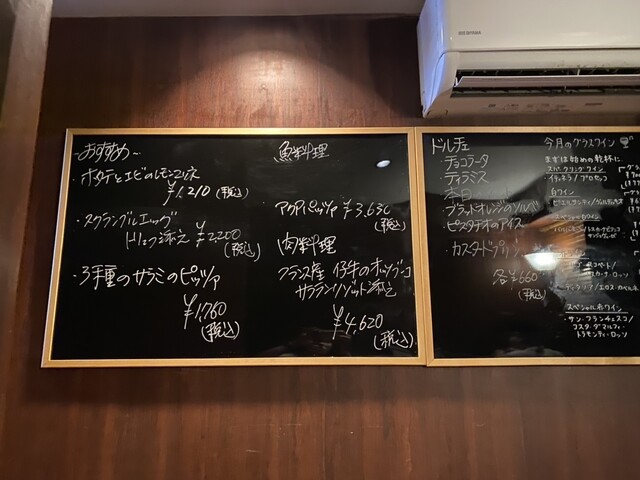 ~おすすめ~
・ホタテとエビのレモンマリネ
¥1,210(税込)
・スクランブルエッグ
トリュフ添え ¥2,200
(税込)
・3種のサラミのピッツァ
¥1,760
(税込)
魚料理
アクアパッツァ ¥3,630
(税込)
肉料理
フランス産 仔牛のオッソブーコ
サフランリゾット添え
¥4,620
(税込)
ドルチェ
・チョコラータ
・ティラミス
・本日の
・ブラッドオレンジのソルベ
・ピスタチオのアイス
・カスタードプリン
各¥660
(税込)
今月のグラスワイン
まずは始めの乾杯に
スパークリングワイン
・イチェネラ/プロセッコ
白ワイン
スペシャル白ワイン
スペシャル赤ワイン
・サン・フランチェスコ/
コスタ・ダマルフィ・
トラモンティ・ロッソ